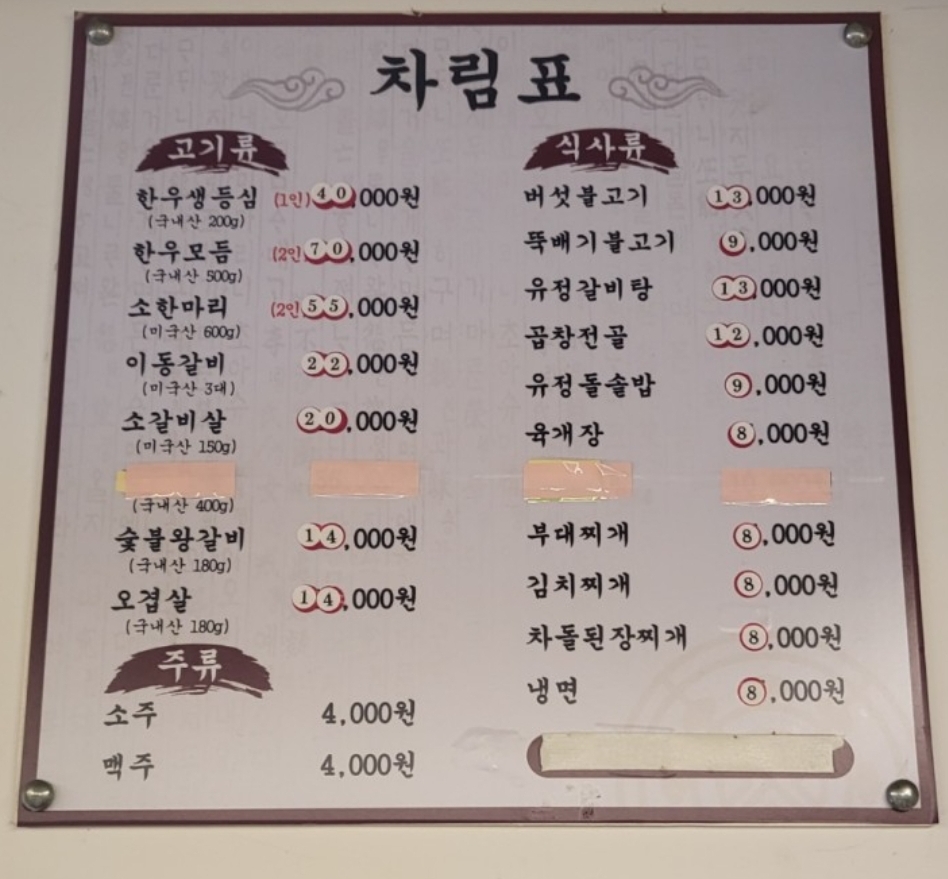 차림표
고기류
한우생등심 (1인) 40,000원
(국내산 200g)
한우모듬 (2인) 70,000원
(국내산 500g)
소한마리 (2인) 55,000원
(미국산 600g)
이동갈비 22,000원
(미국산 3대)
소갈비살 20,000원
(미국산 150g)
(국내산 400g)
숯불왕갈비 14,000원
(국내산 180g)
오겹살 14,000원
(국내산 180g)
주류
소주 4,000원
맥주 4,000원
식사류
버섯불고기 13,000원
뚝배기불고기 9,000원
유정갈비탕 13,000원
곱창전골 12,000원
유정돌솥밥 9,000원
육개장 8,000원
부대찌개 8,000원
김치찌개 8,000원
차돌된장찌개 8,000원
냉면 8,000원